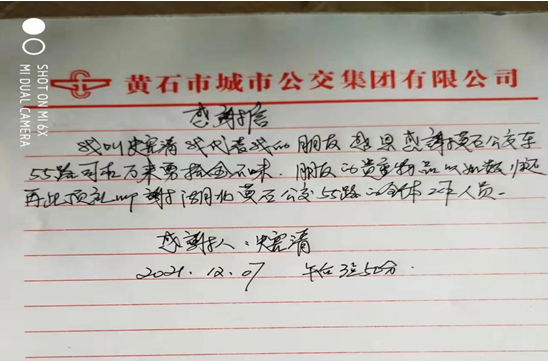 SHOT ON MI 6X
MI DUAL CAMERA
黄石市城市公交集团有限公司
感謝信
我叫史宪清 我代表我的朋友 感謝黄石公交车
55路司机 拾金不昧 朋友的贵重物品以如数归还
再此顶礼 謝湖北黄石公交55路的全体工作人员.
感謝人:史宪清
2021.12.07 午后3点50分.